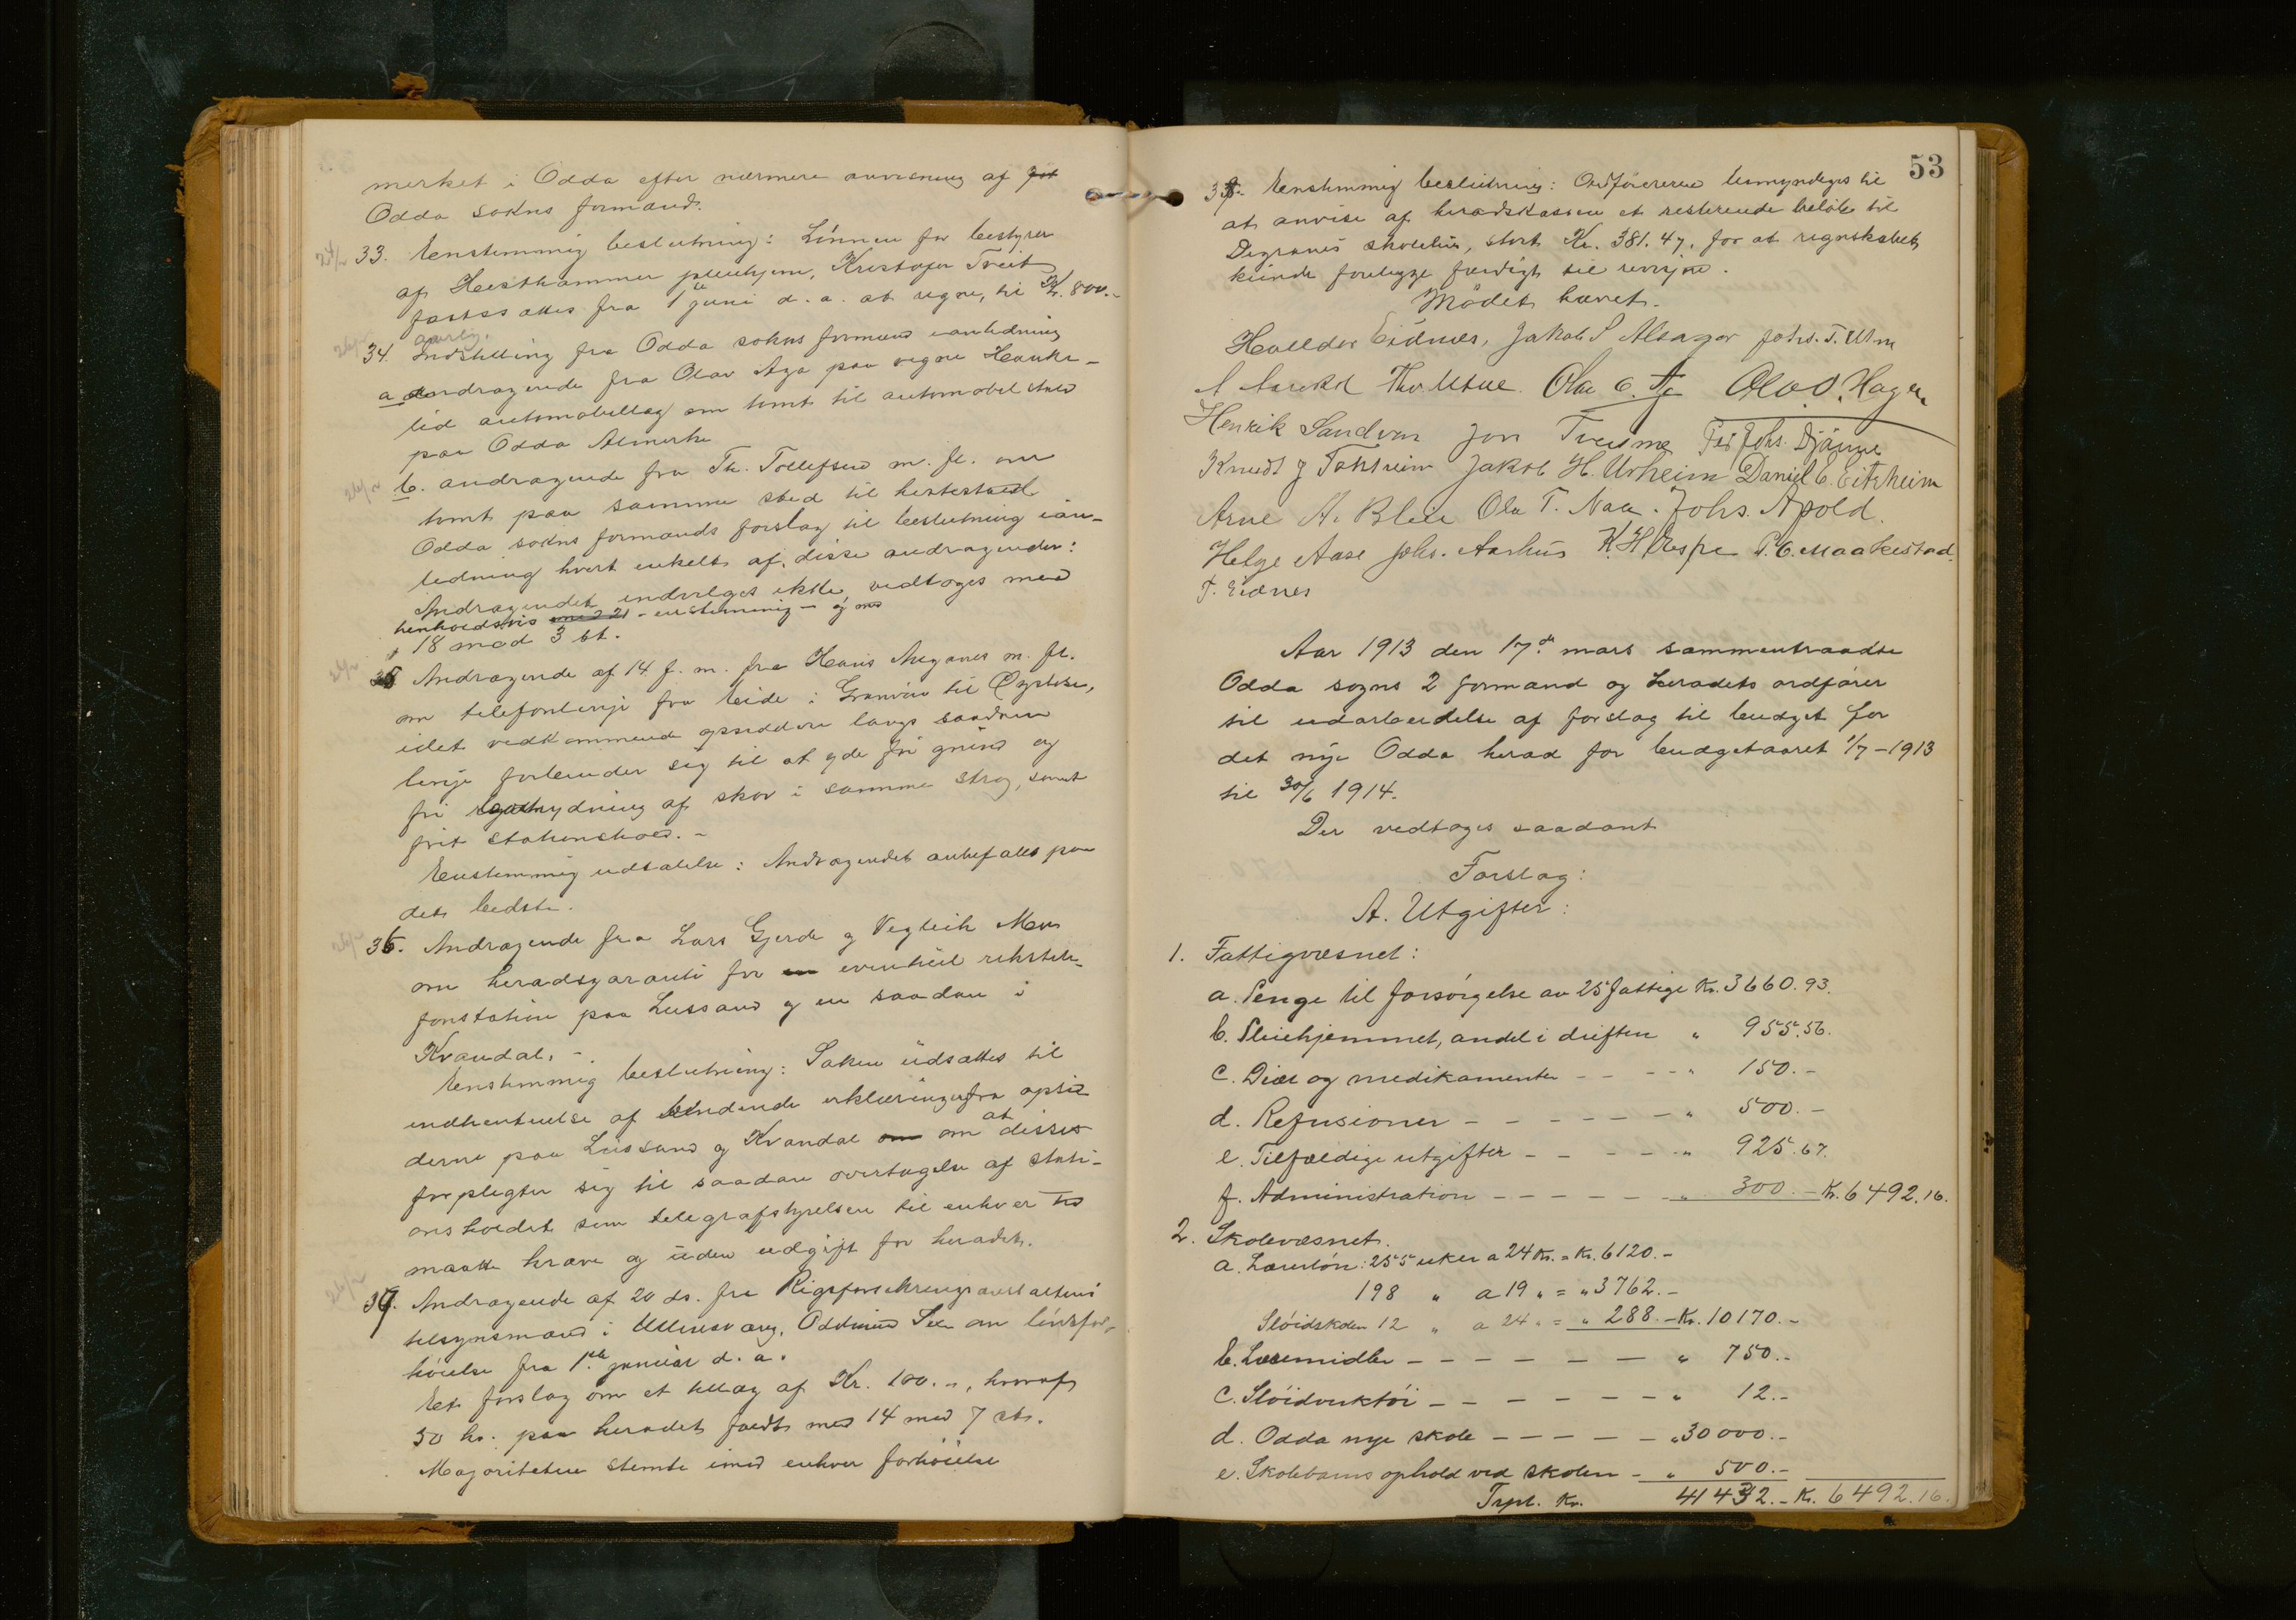 merket i Odda efter nærmere anvisning af
Odda sokns formand.
33. Enstemmig beslutning: Lönnen for bestyrer
af Hesthammer pleiehjem, Kristofer Tveit
fastsættes fra 1ste juni d. a. at regne, til Kr. 800.-
aarlig.
34. Indstilling fra Odda sokns formand i anledning
a andragende fra Olav Aga paa vegne Hauke-
lid automobillag om tomt til automobil stald
paa Odda Almerke
b. andragende fra Th. Tollefsen m. fl. om
tomt paa samme sted til hestestald
Odda sokns formands forslag til beslutning i an-
ledning hvert enkelt af disse andragender:
Andragendet indvilges ikke, vedtoges med
henholdsvis med 21 - enstemmig - og med
18 mod 3 st.
35 Andragende af 14 f. m. fra Hans Meganes m. fl.
om telefonlinje fra Eide i Granvin til Øystese,
idet vedkommende opsiddere langs saadan
linje forbinder sig til at yde fri grund og
fri rydning af skov i samme strøg, samt
frit stationshold. -
Enstemmig udtalelse: Andragendet anbefales paa
det bedste.
36. Andragende fra Lars Gjerde og Vegleik Mæn
om heradsgaranti for en eventuel rikstele-
fonstation paa Lussand og en saadan i
Kvandal. -.
Enstemmig beslutning: Saken udsættes til
indhentelse af bindende erklæringer fra opsid
derne paa Lussand og Kvandal om om at disse
forpligter sig til saadan overtagelse af stati-
onsholdet som telegrafstyrelsen til enhver tid
maatte kræve og uden udgift for heradet.
37. Andragende af 20 ds. fra Rigsforsikringsanstaltens
tilsynsmand i Ullensvang, Oddmund om lönsfor-
höielse fra 1ste januar d. a.
Et forslag om et tillæg af Kr. 100.-, hvoraf
50 kr. paa heradet faldt med 14 mod 7 st.
Majoriteten stemte imod enhver forhöielse
53
38. Enstemmig beslutning: Ordföreren bemyndiges til
at anvise af heradskassen et resterende belöb til
Digranes skolehus, stort Kr. 381.47, for at regnskabet
kunde forelægge færdigt til revisjon.
Mödet hævet.
Halldor Eidnes, Jakob S Alsager Johs. T. Utne
Thv. Utne. Olav O. Hagen
Henrik Sandven Jon Tveisme Per Johs. Djönne
Knudt J Tokheim Jakob H. Urheim Daniel E. Eitrheim
Arne A. Bleie Ola T. Naa. Johs. Apold.
Helge Aase Johs. Aarhus K. H. Espe P. O. Maakestad.
T. Eidnes
Aar 1913 den 17de mars sammentraadte
Odda sogns 2 formænd og heradets ordförer
til udarbeidelse af forslag til budget for
det nye Odda herad for budgetaaret 1/7-1913
til 30/6 1914.
Der vedtoges saadant
Forslag:
A. Utgifter:
1. Fattigvæsnet:
a. Penge til forsörgelse av 25 fattige Kr. 3660.93.
b. Pleiehjemmet, andel i driften " 955.56.
c. Diæt og medikamenter - - - - " 150.-
d. Refusioner - - - - - - " 500.-
e. Tilfældige utgifter - - - - - " 925.67.
f. Administration - - - - - - " 300.- Kr. 6492.16.
2. Skolevæsnet.
a. Lærerlön: 255 uker a 24 Kr. = Kr. 6120.-
198 " a 19 " = " 3762.-
Slöidskolen 12 " a 24 " = " 288.- Kr. 10170.-
b. Læremidler - - - - - - " 750.-
c. Slöidverktöi - - - - - - " 12.-
d. Odda nye skole - - - - - " 30000.-
e. Skolebarns ophold ved skolen - " 500.-
Trpt. Kr. 41432.- Kr. 6492.16.